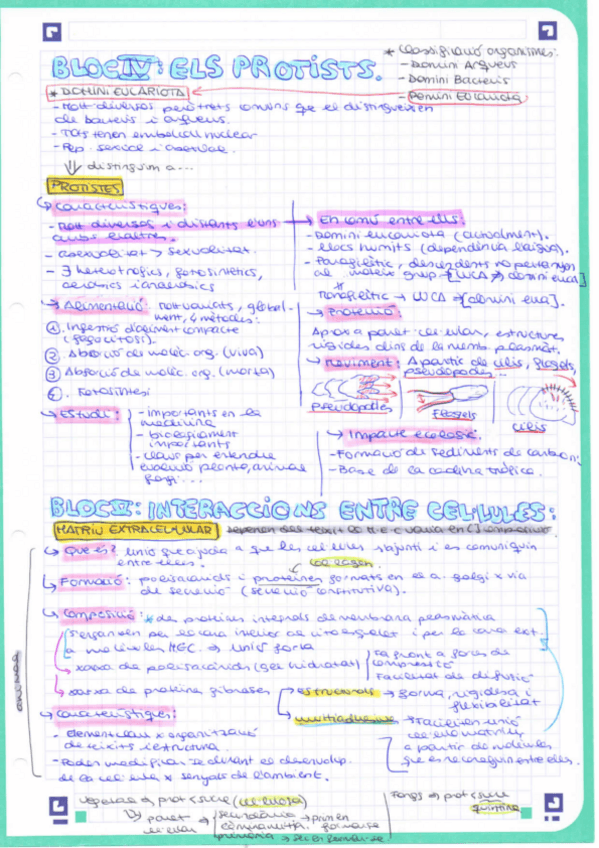 * Classificació organismes:
- Domini Arqueus
- Domini Bacteris
- Domini Eucariota
BLOC IV: ELS PROTISTS.
* DOMINI EUCARIOTA
- Molt diversos però trets comuns que el distingueixen
de bacteris i arqueus.
- Tots tenen embolcall nuclear
- Rep. sexual i asexual.
distingim a...
PROTISTES
Característiques:
- Molt diversos i distants uns
amb
- asexualitat > sexualitat.
- ∃ heteròtrofics, fotosintètics,
aerobics i anaerobics
En comú entre ells:
- Domini eucariota (actualment).
- Llocs humits (dependència l'aigua).
- Parafilètic, descendents no pertanyen
al mateix grup → [LUCA ⇒ domini euca]
Monofilètic → LUCA ⇒ [domini euca].
Alimentació: molt variats,
ment, 4 mètodes:
1. Ingestió d'aliment compacte
(fagocitosi).
2. Absorció de molèc. org. (viva)
3. Absorció de molèc. org. (morta)
4. Fotosíntesi
Protecció:
Apart a paret cel·lular, estructures
rígides dins de la memb. plasmàt.
Moviment: A partir de cilis, flagels,
pseudopodes...
pseudopodes
Flagels
Cilis
Estudi:
- importants en la
medicina
- biològicament
importants
- claus per entendre
evolució planta, animal
fongs...
Impacte ecològic:
- Formació de sediments de carboni
- Base de la cadena tròfica.
BLOC V: INTERACCIONS ENTRE CÈL·LULES:
MATRIU EXTRACEL·LULAR
Què és? Unió que ajuda a que les cèl·lules s'ajuntin i es comuniquin
entre elles.
col·lagen
Formació: polisacàrids i proteïnes formats en el a. golgi x via
de secreció (secreció constitutiva).
Composició: * des proteïnes integrals de membrana plasmàtica
S'organitzen per la cara interior al citoesquelet i per la cara ext.
a molècules MEC. ⇒ unió forta
xarxa de polisacàrids (gel hidratat)
Fa front a forces de
compressió
Facilitat de difusió
xarxa de proteïnes fibroses
estructurals → forma, rigidesa i
flexibilitat
multiadhesives → Faciliten unió
cèl·lula matriu
a partir de molècules
que es reconeguin entre elles.
animals
Característiques:
- Elements clau x organització
de teixits i estructura.
- Poden modificar-se durant el desenvolup.
de la cèl·lula x senyals de l'ambient.
Vegetals → prot + sucre (cel·lulosa)
paret
cel·lular
secundària →
primària →
Fongs → prot + sucre
quitina